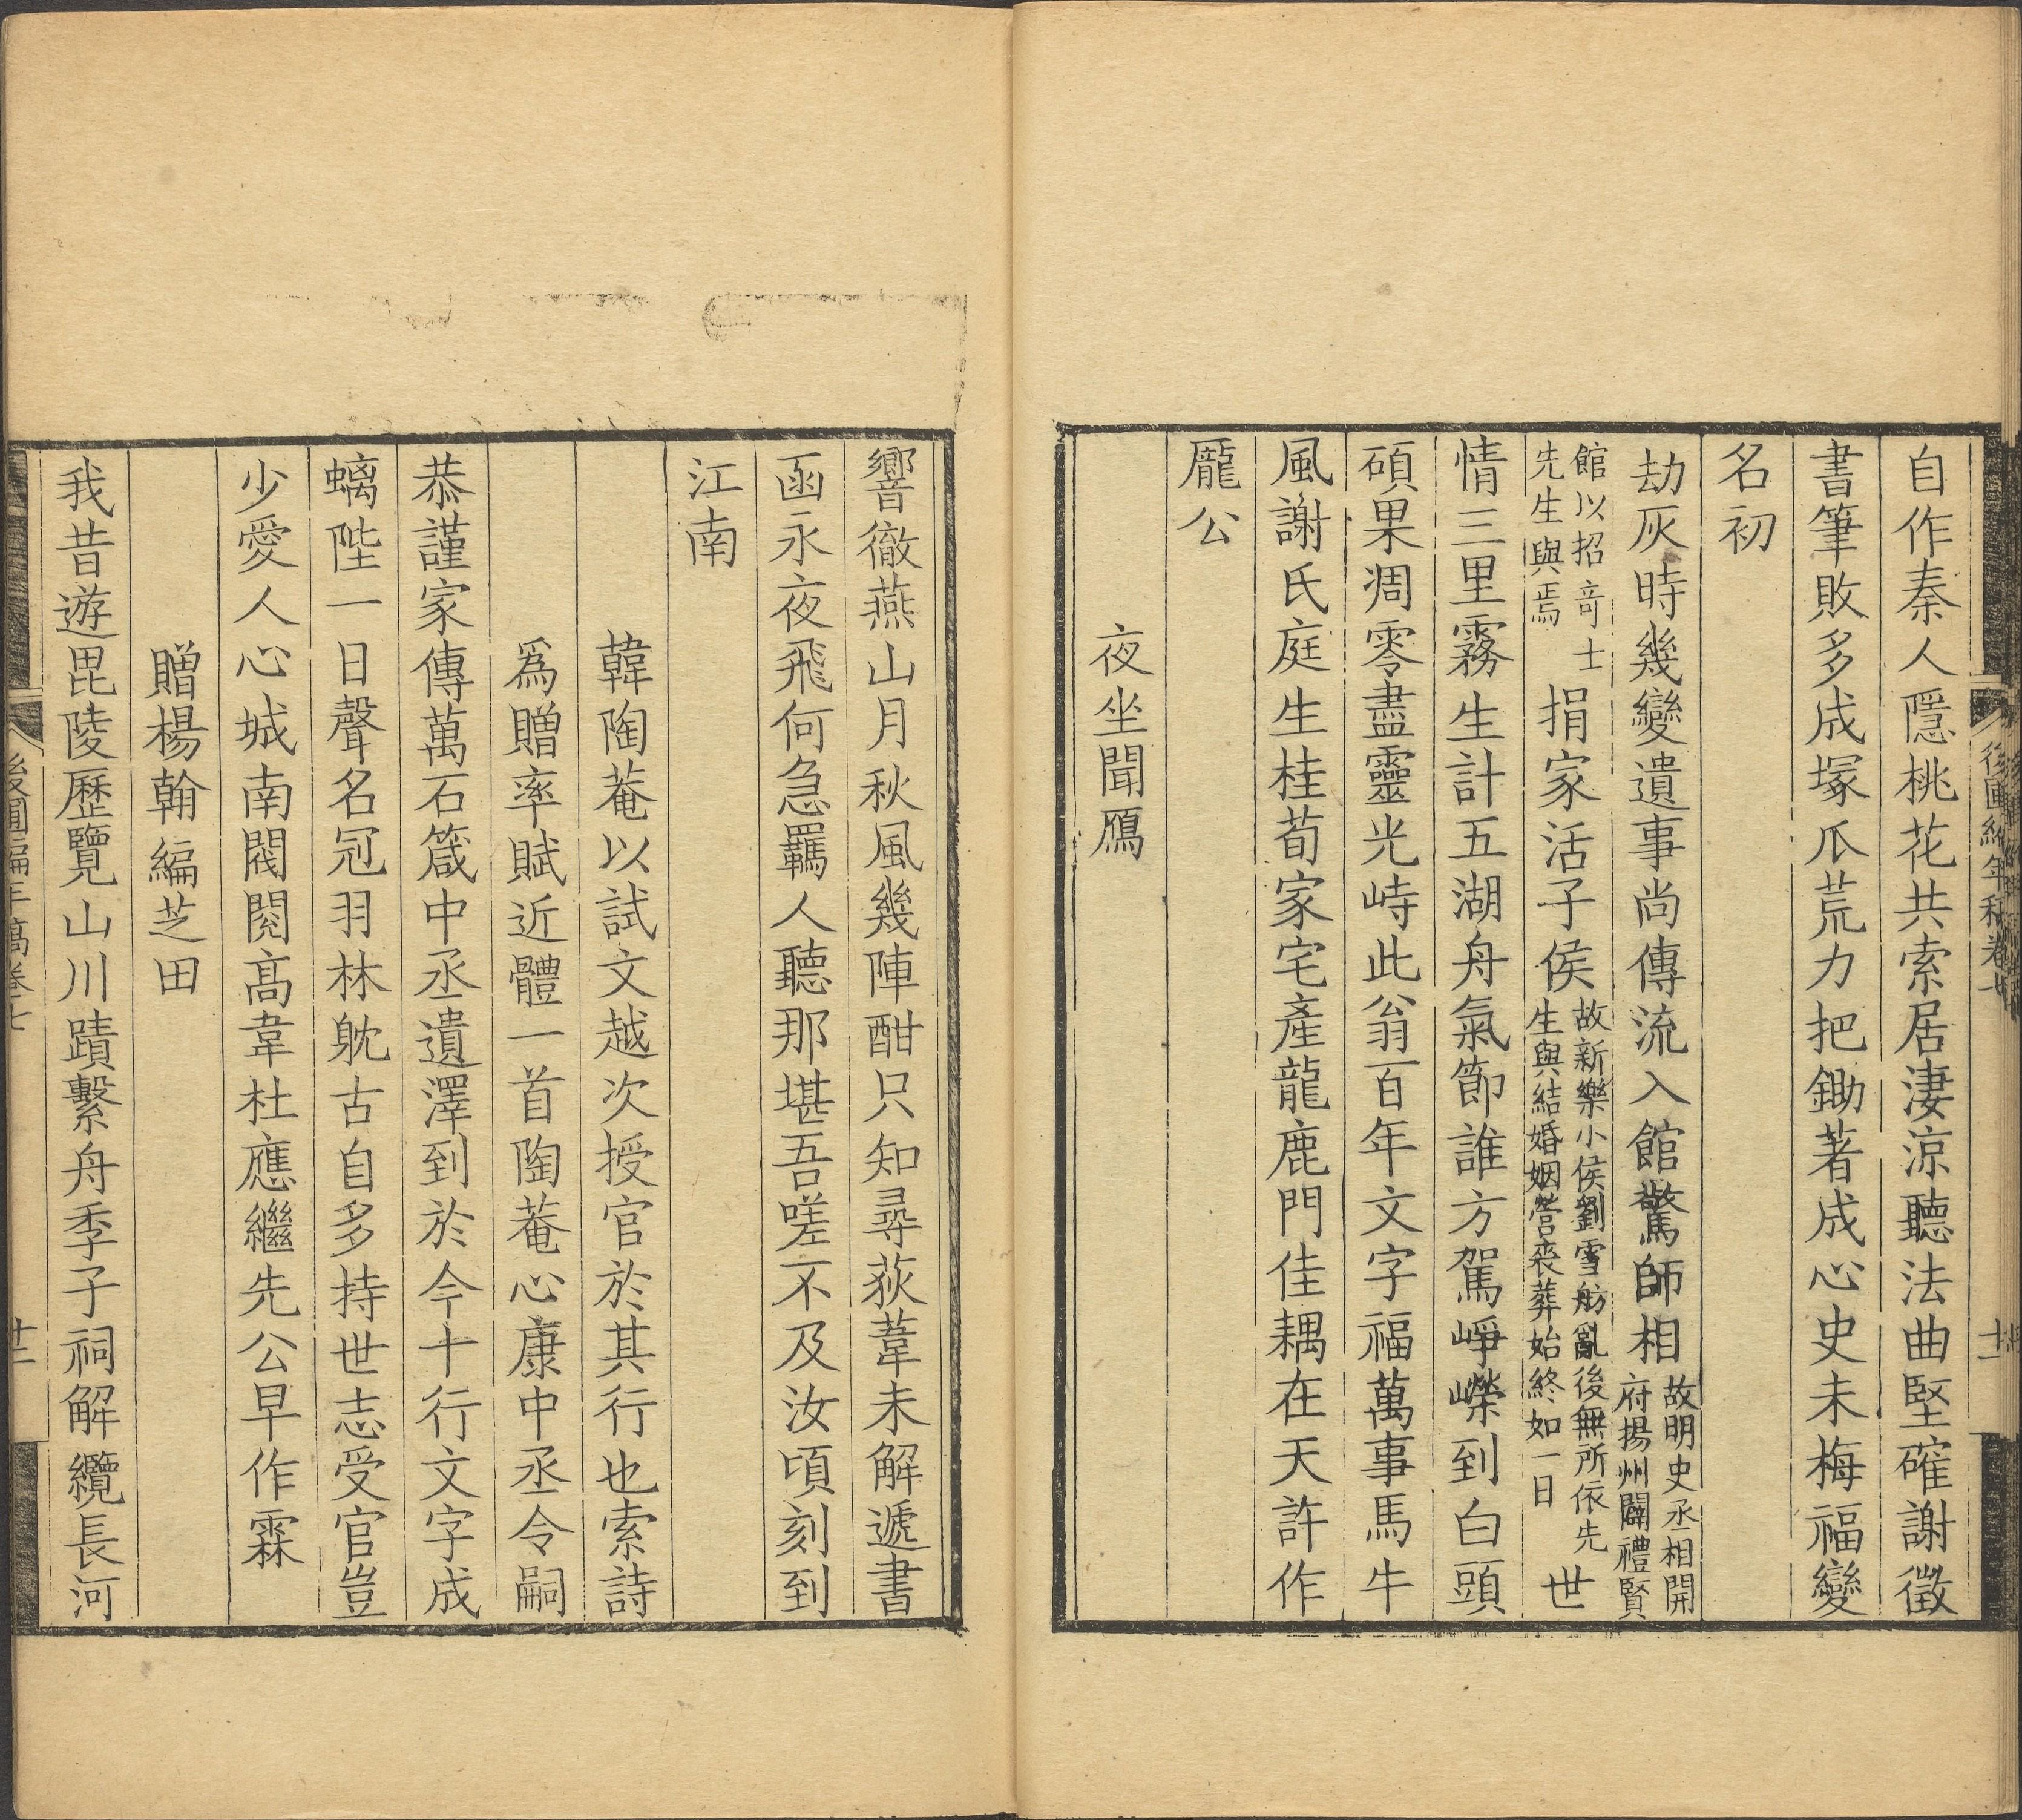 自作秦人隱桃花共索居淒涼聽法曲堅確謝徵
書筆敗多成塚瓜荒力把鋤著成心史未梅福變
名初
劫灰時幾變遺事尚傳流入館驚師相
故明史丞相開
府揚州闢禮賢
館以招竒士
先生與焉
捐家活子侯
故新樂小侯劉雪舫亂後無所依先
生與結婚姻營喪葬始終如一日
世
情三里霧生計五湖舟氣節誰方駕崢嶸到白頭
碩果凋零盡靈光峙此翁百年文字福萬事馬牛
風謝氏庭生桂荀家宅產龍鹿門佳耦在天許作
龐公
夜坐聞鴈
響徹燕山月秋風幾陣酣只知尋荻葦未解遞書
函永夜飛何急羈人聽那堪吾嗟不及汝頃刻到
江南
韓陶菴以試文越次授官於其行也索詩
爲贈率賦近體一首陶菴心康中丞令嗣
恭謹家傳萬石箴中丞遺澤到於今十行文字成
螭陛一日聲名冠羽林躭古自多持世志受官豈
少愛人心城南閥閱高韋杜應繼先公早作霖
贈楊翰編芝田
我昔遊毘陵歷覽山川蹟繫舟季子祠解纜長河